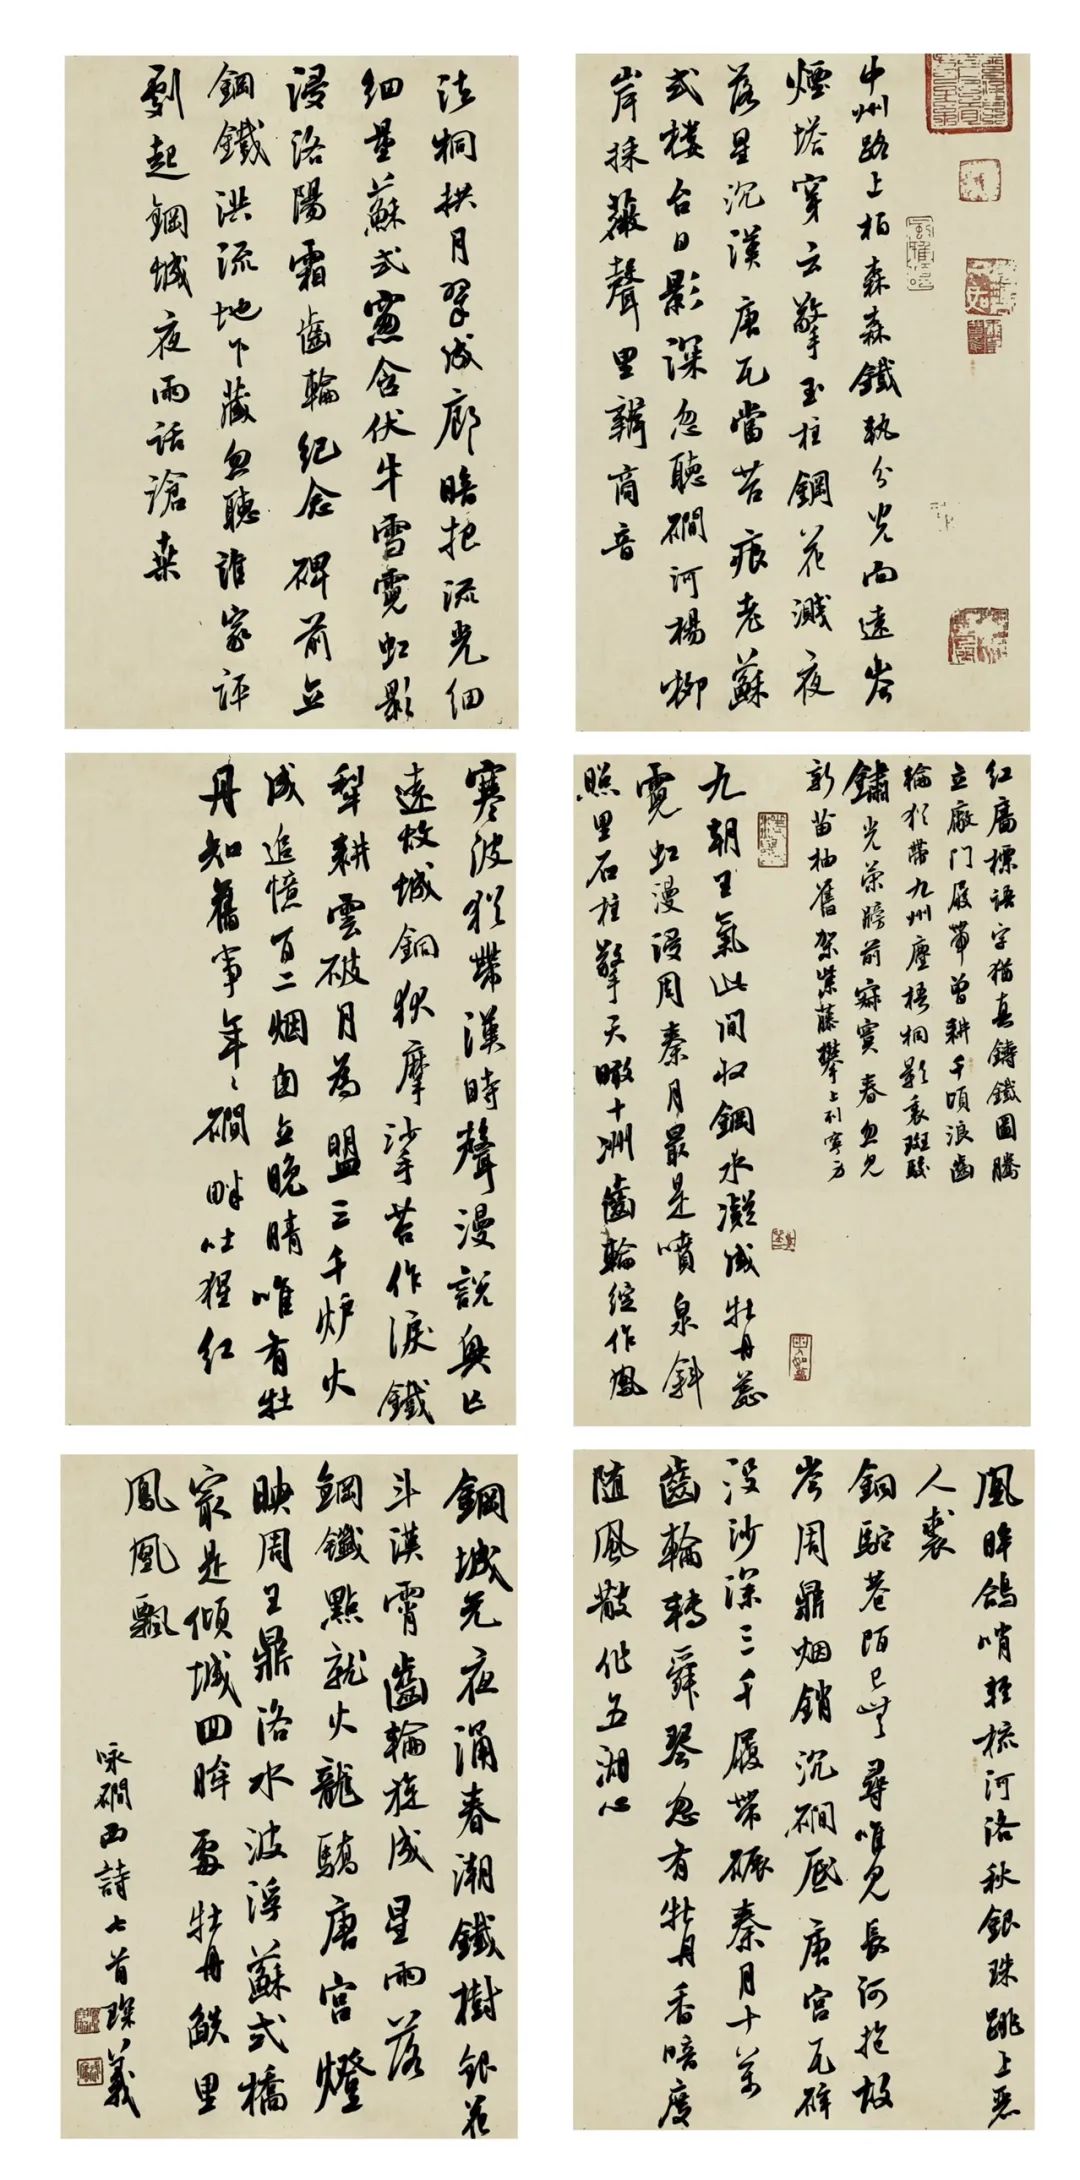 中州路上柏森森鐵軌分光向遠岑
煙塔穿云擎玉柱鋼花濺夜
落星沉漢唐瓦當苔痕老蘇
式樓台日影深忽聽磵河楊柳
岸採薇聲里辨商音
法桐拱月翠成廊暗把流光細
細量蘇式窗含伏牛雪霓虹影
浸洛陽霜齒輪紀念碑前立
鋼鐵洪流地下藏忽聽誰家評
劇起鋼城夜雨話滄桑
紅磚標語字猶真鑄鐵圖騰
立廠門履帶曾耕千頃浪齒
輪猶帶九州塵梧桐影裏斑駁
鏽光榮牓前寂寞春忽見
新苗抽舊架紫藤攀上列寧巾
九朝王氣此間收鋼水凝成牡丹蕊
霓虹漫浸周秦月最是噴泉斜
照里石柱擎天瞰十洲齒輪綻作鳳
寒波猶帶漢時聲漫說興亡
遠故城銅狄摩挲苔作淚鐵
犁耕雲破月為盟三千炉火
成追憶百二烟囱立晚晴唯有牡
丹知舊事年年磵畔吐猩紅
凰眸鴿哨輕梳河洛秋銀珠跳上戀
人裘
銅駝巷陌已無尋唯見長河抱故
岑周鼎烟銷沉磵底唐宮瓦碎
没沙深三千履帶碾秦月十萬
齒輪轉舜琴忽有牡丹香暗度
随風散作五湖心
鋼城元夜涌春潮鐵樹銀花
斗漢霄齒輪旋成星雨落
鋼鐵點就火龍驕唐宮燈
映周王鼎洛水波浮蘇式橋
最是傾城回眸處牡丹鈇里
鳳凰飄
咏磵西詩七首 琛義